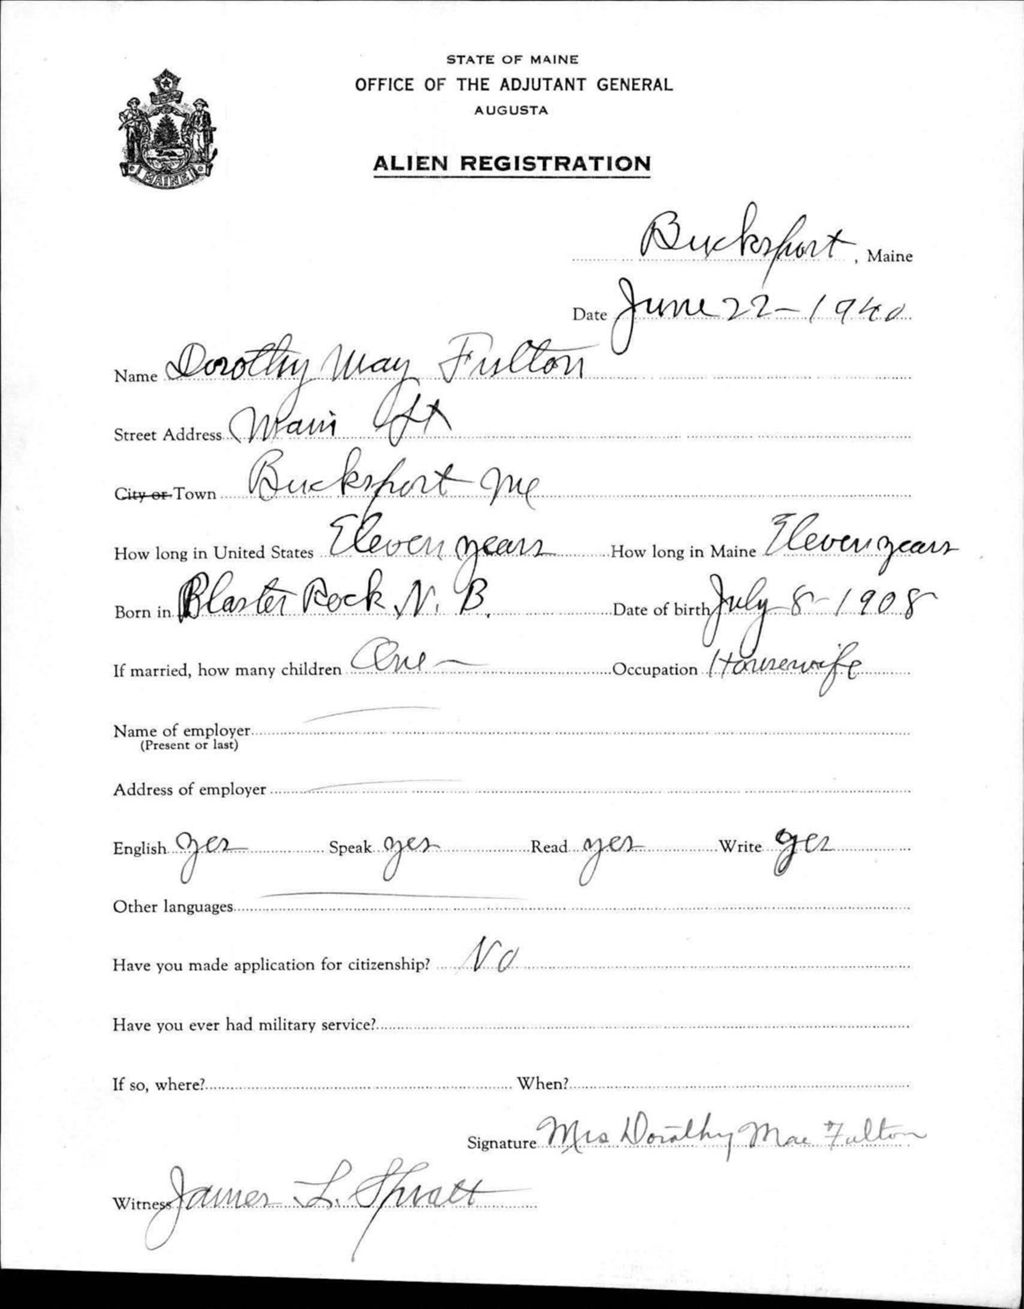 STATE OF MAINE
OFFICE OF THE ADJUTANT GENERAL
AUGUSTA
ALIEN REGISTRATION
MAINE
Bucksport, Maine
Date June 22-1940
Name Dorothy May Fulton
Street Address Main St
City or Town Bucksport Me
How long in United States Eleven years How long in Maine Eleven years
Born in Plaster Rock N. B. Date of birth July 8-1908
If married, how many children One Occupation Housewife
Name of employer
(Present or last)
Address of employer
English yes Speak yes Read yes Write yes
Other languages
Have you made application for citizenship? No
Have you ever had military service?
If so, where? When?
Signature Mrs Dorothy Mae Fulton
Witness James L. Spratt